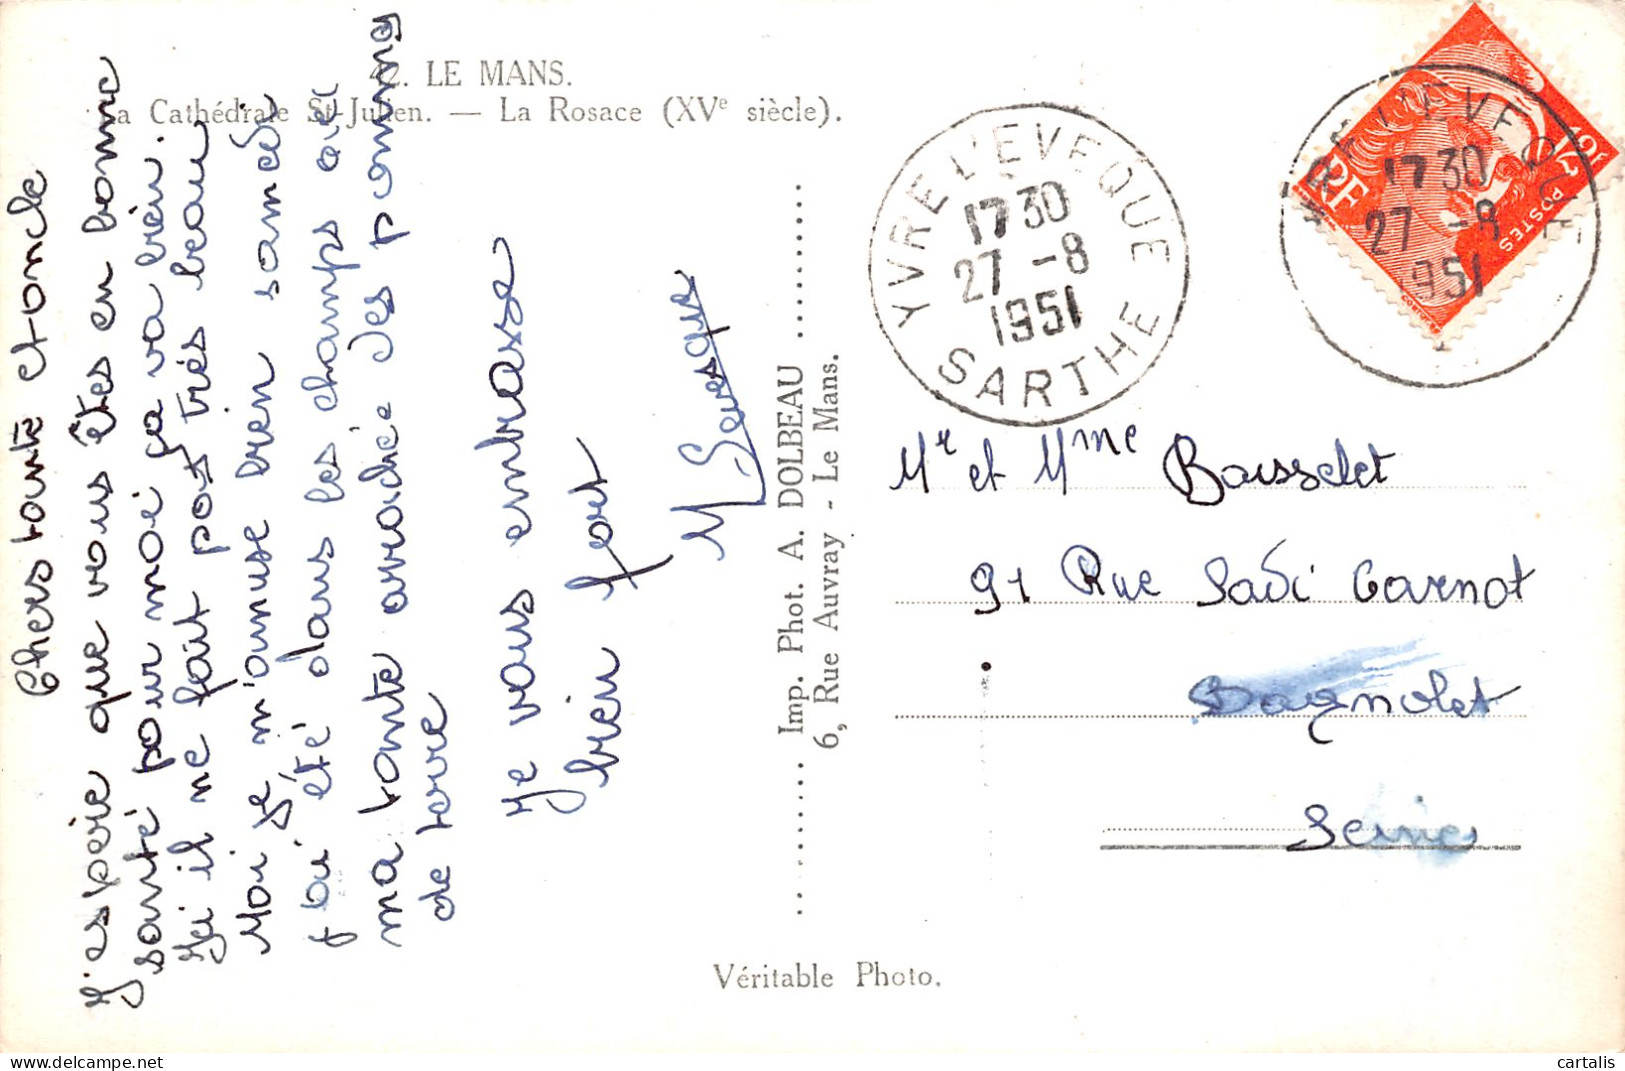 42. LE MANS.
La Cathédrale St-Julien. — La Rosace (XVe siècle).
Chers tante et oncle
J'espérie que vous êtes en bonne
santé pour moi ça va bien.
Ici il ne fait pas très beau
Moi je m'amuse bien samedi
j'ai été dans les champs avec
ma tante arraché des pommes
de terre
Je vous embrasse
bien fort
M Levesque
Imp. Phot. A. DOLBEAU
6, Rue Auvray - Le Mans.
Véritable Photo.
YVRE L'EVEQUE
1730
27 -8
1951
SARTHE
YVRE L'EVEQUE
1730
27 -8
1951
RF
12f
POSTES
Mr et Mme Boisselet
91 Rue Sadi Carnot
Bagnolet
Seine
cartalis